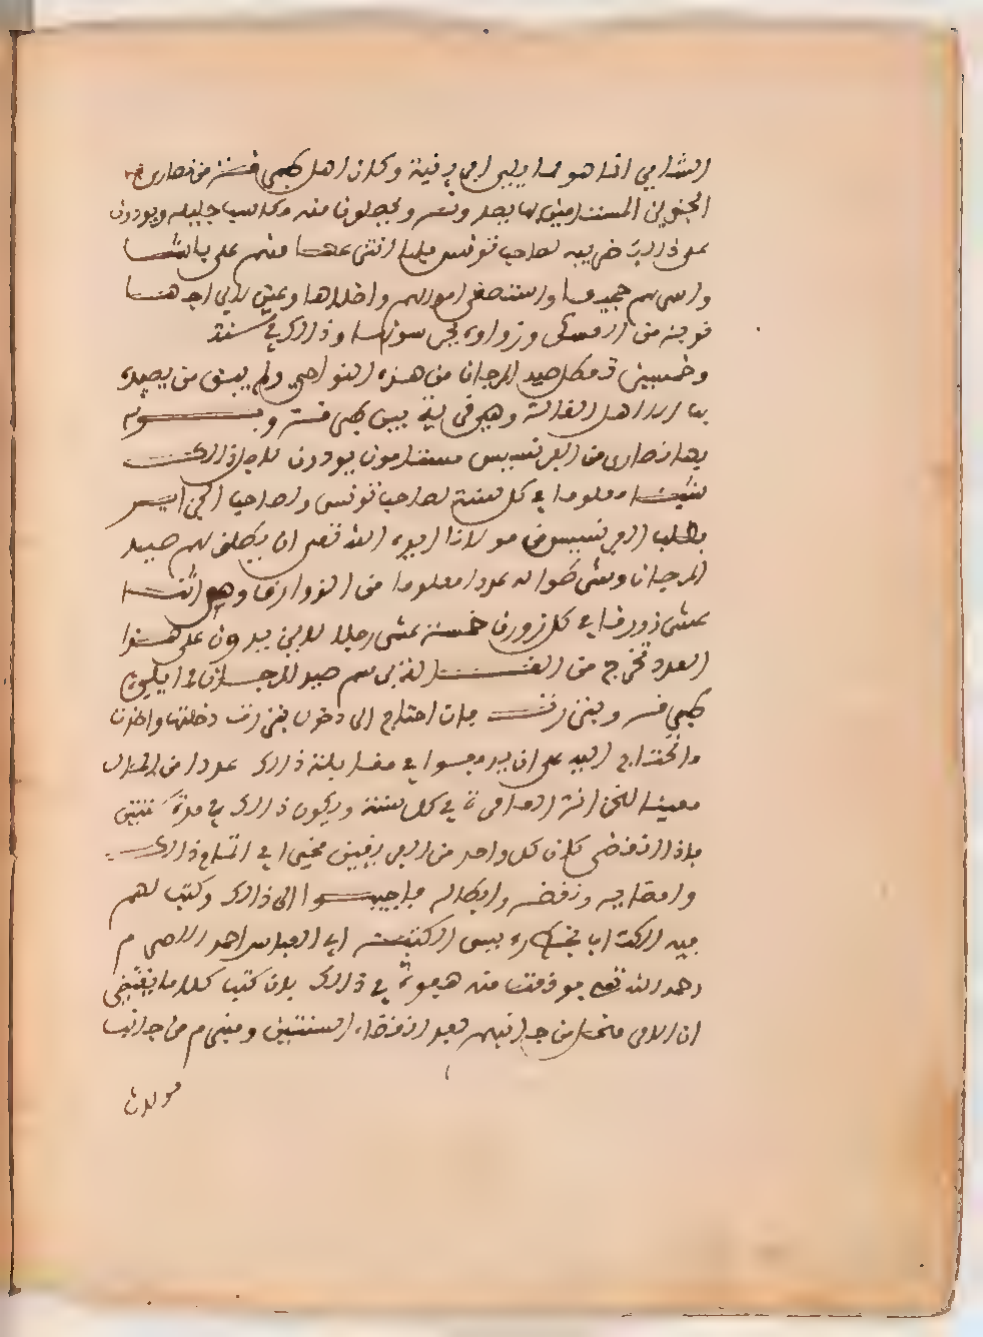 الشامي انما هو مما يلي افريقية وكان اهل طبرقة من نصارى
الجنوين المستامنين بها يصيدونه ويحصلون منه مكاسب جليله ويودون
على ذالك ضريبه لصاحب تونس فلما انتزعها منهم علي باشا
واسرهم جميعا واستصفى اموالهم واخلاها وعين لرباطها
نوبة من الترك وزواوة يحرسونها وذالك في سنة
وخمسين تعطل صيد المرجان من هذه النواحي ولم يبق من يصيده
بها الا اهل القالة وهي قرية بين طبرقة وبونة
بها نصارى من الفرنسيس مستامنون يودون لاجل ذالك
شيئا معلوما في كل سنة لصاحب تونس ولصاحب الجزاير
فطلب الفرنسيس من مولانا ايده الله تعالى ان يطلق لهم صيد
المرجان وشرطوا له عددا معلوما من الزوارق وهو اثنا
عشر زورقا في كل زورق خمسة عشر رجلا لا يزيدون على هذا
العدد تخرج من القالة برسم صيد المرجان فيما يلي
طبرقة وبنزرت فان احتاج الى دخول بنزرت دخلتها واخذت
ما تحتاج اليه على ان يدفعوا في مقابلة ذالك عددا من المال
معينا للخزانة العامرة في كل سنة ويكون ذالك في مدة سنتين
فاذا انقضت كان كل واحد من الفريقين مخيرا في اتمام ذالك
وامضايه ونقضه وابطاله فاجيبوا الى ذالك وكتب لهم
فيه الكتاب بخط رييس الكتبة ابي العباس احمد الاصرم
رحمه الله تعالى فوقعت منه هفوة في ذالك بان كتب كلاما يقتضي
ان الامر منحل من جانبهم بعد انقضاء السنتين ومنبرم من جانب
مولانا